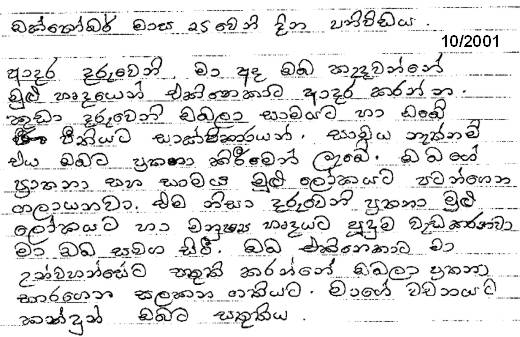 ඔක්තෝබර් මාස 25 වෙනි දින පනිවිඩය.
10/2001
ආදර දරුවෙනි මා අද ඔබ කැඳවන්නේ
මුළු හෘදයෙන් එකිනෙකාට ආදර කරන්න.
කුඩා දරුවෙනි ඔබලා සාමයට හා ඔබේ
ජීතියට සාක්ෂිකාරයන්. සාමය නැත්නම්
එය ඔබට ප්‍රකනා කිරීමෙන් ලැබේ. ඔබගේ
ප්‍රාතනා සහ සාමය මුළු ලෝකයට පටන්ගෙන
ගලායනවා. එම නිසා දරුවෙනි ප්‍රකනා මුළු
ලෝකයට හා මනුෂ්‍ය හෘදයට පුදුම වැඩකරනවා
මා ඔබ සමග සිටී. ඔබ එකිනෙකාට මා
උන්වහන්සේට සතුති කරන්නේ ඔබලා ප්‍රකනා
භාරගෙන සලකන ගතියට. මාගේ වචනයට
කන්දුන් ඔබට සතුතිය.